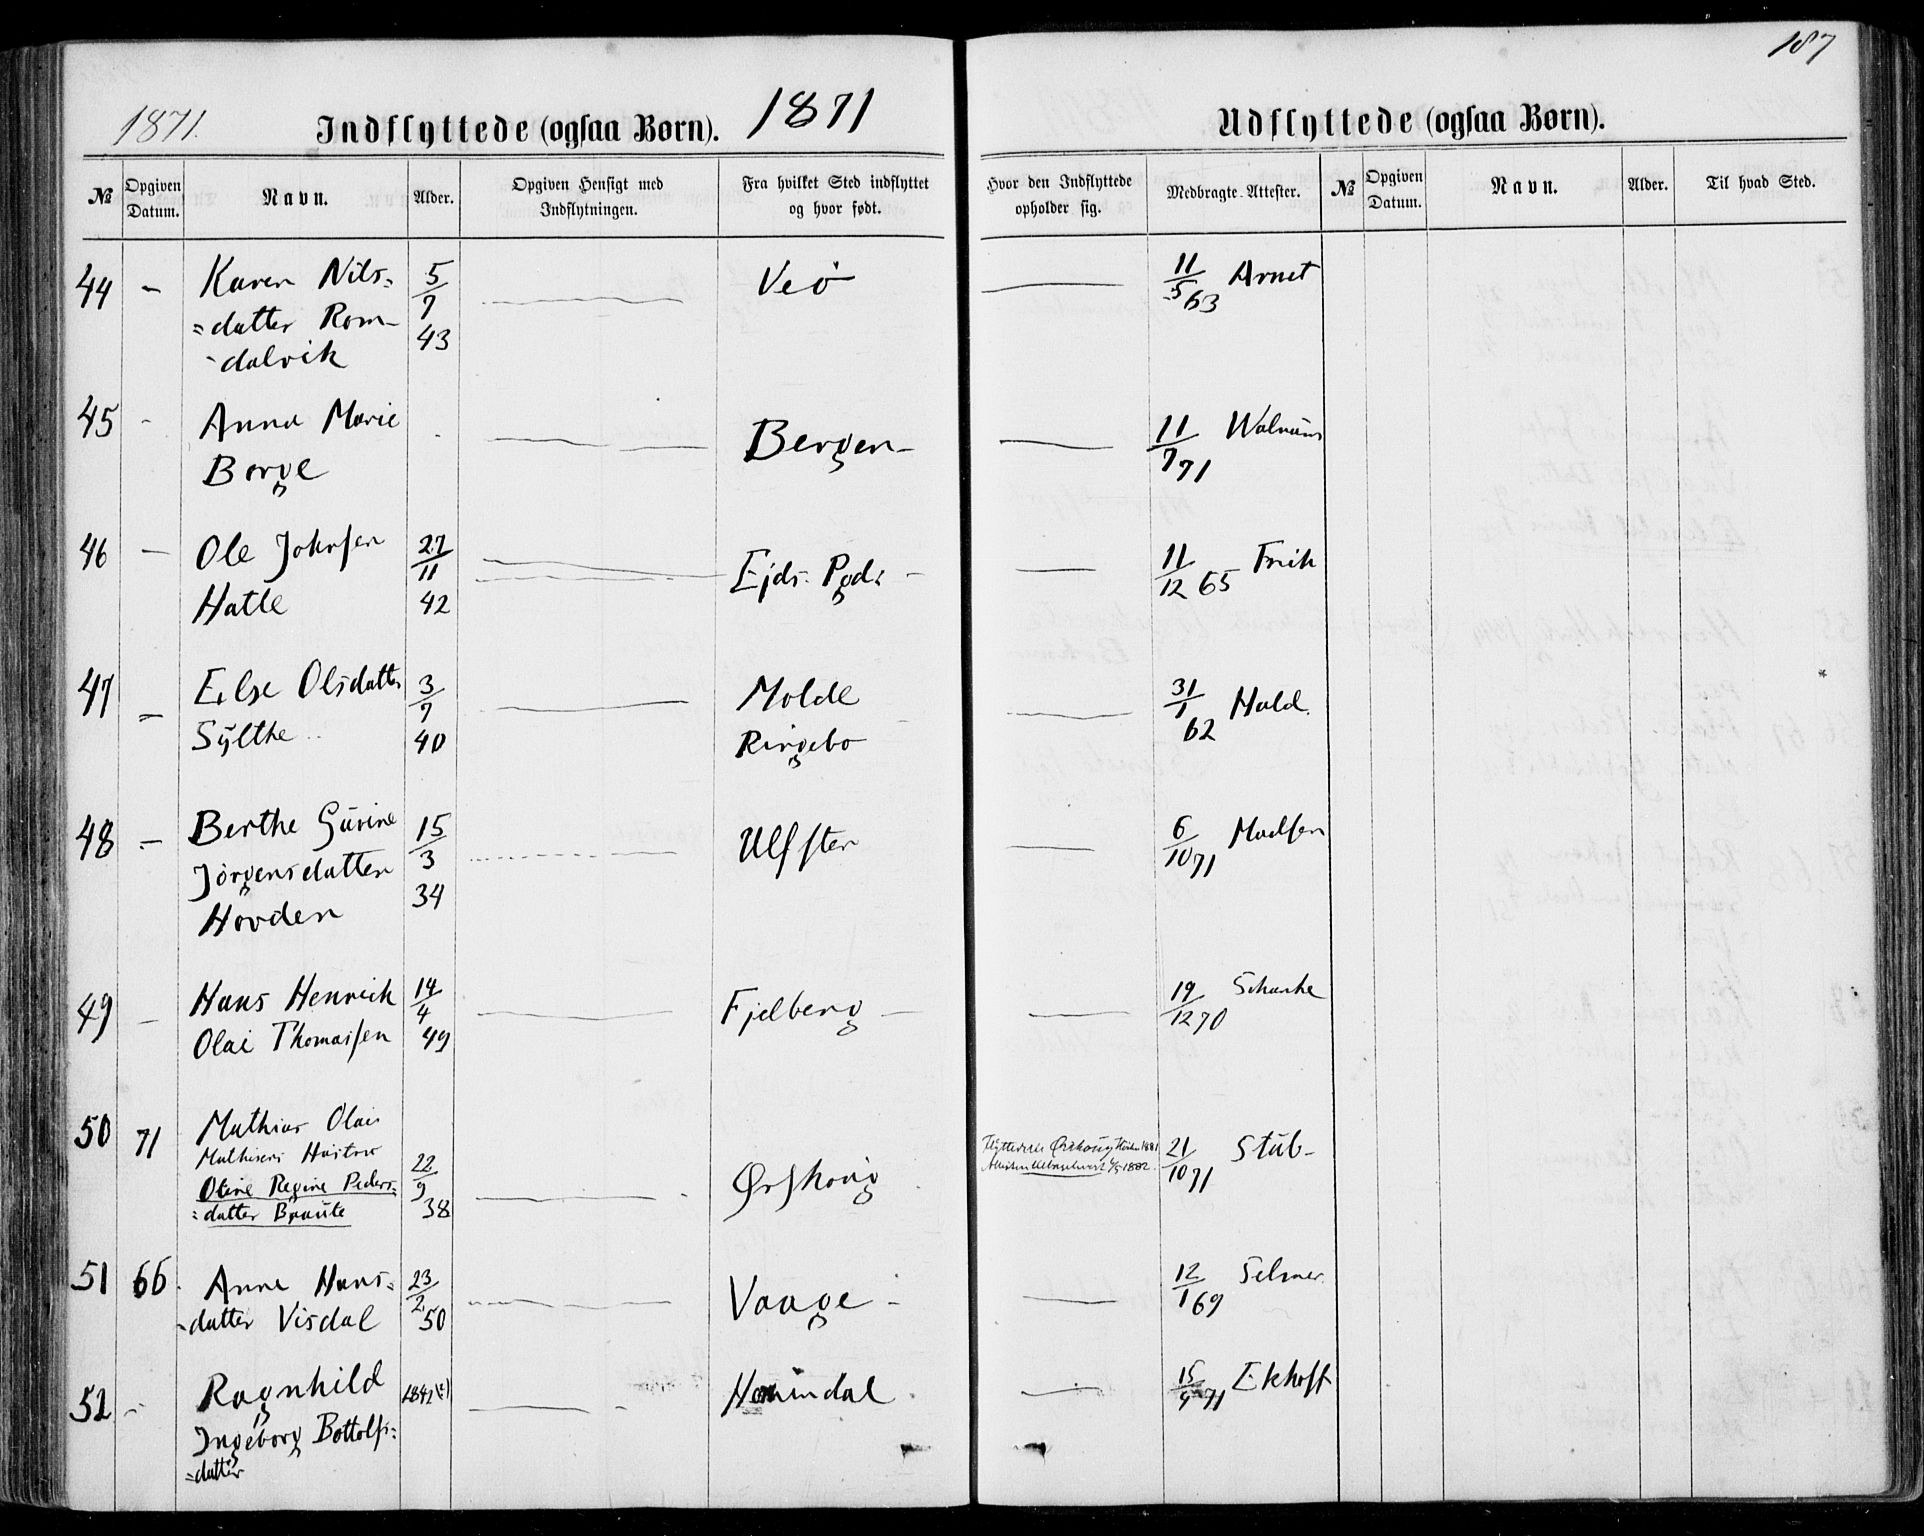 187
1871.
Indflyttede (ogsaa Børn).
1871
Udflyttede (ogsaa Børn).
№
Opgiven Datum.
Navn.
Alder.
Opgiven Hensigt med Indflytningen.
Fra hvilket Sted indflyttet og hvor født.
Hvor den Indflyttede opholder sig.
Medbragte Attester.
№
Opgiven Datum.
Navn.
Alder.
Til hvad Sted.
44 – Karen Nils= 5/7 Veö 11/5 63 Arnet
=datter Rom- 43
-dalvik
45 - Anna Marie Bergen- 11/7 71 Walnum
Borge
46 – Ole Johnsen 27/11 Ejds. Pgd: – 11/12 65 Frich
Hatle 42
47 – Else Olsdatter 3/7 Molde 31/1 62 Hald.
Sylthe 40 Ringebo
48 – Berthe Gurine 15/3 Ulfsten 6/10 71 Madsen
Jörgensdatter 34
Hovden
49 – Hans Henrick 14/4 Fjelberg – 19/12 70 Schanke
Olai Thomassen 49
50 71 Mathias Olai 21/10 71 Stub-
Mathisens Hustro 22/9 Ørskoug
Oline Regine Peders= 38
=datter Braute
51 66. Anne Hans= 23/2 Vaage – 12/1 69 Selmer.
-datter Visdal 50
52 – Ragnhild 1841 Hornindal 15/9 71 Ekhoff
Ingeborg Bottolfs=
=datter